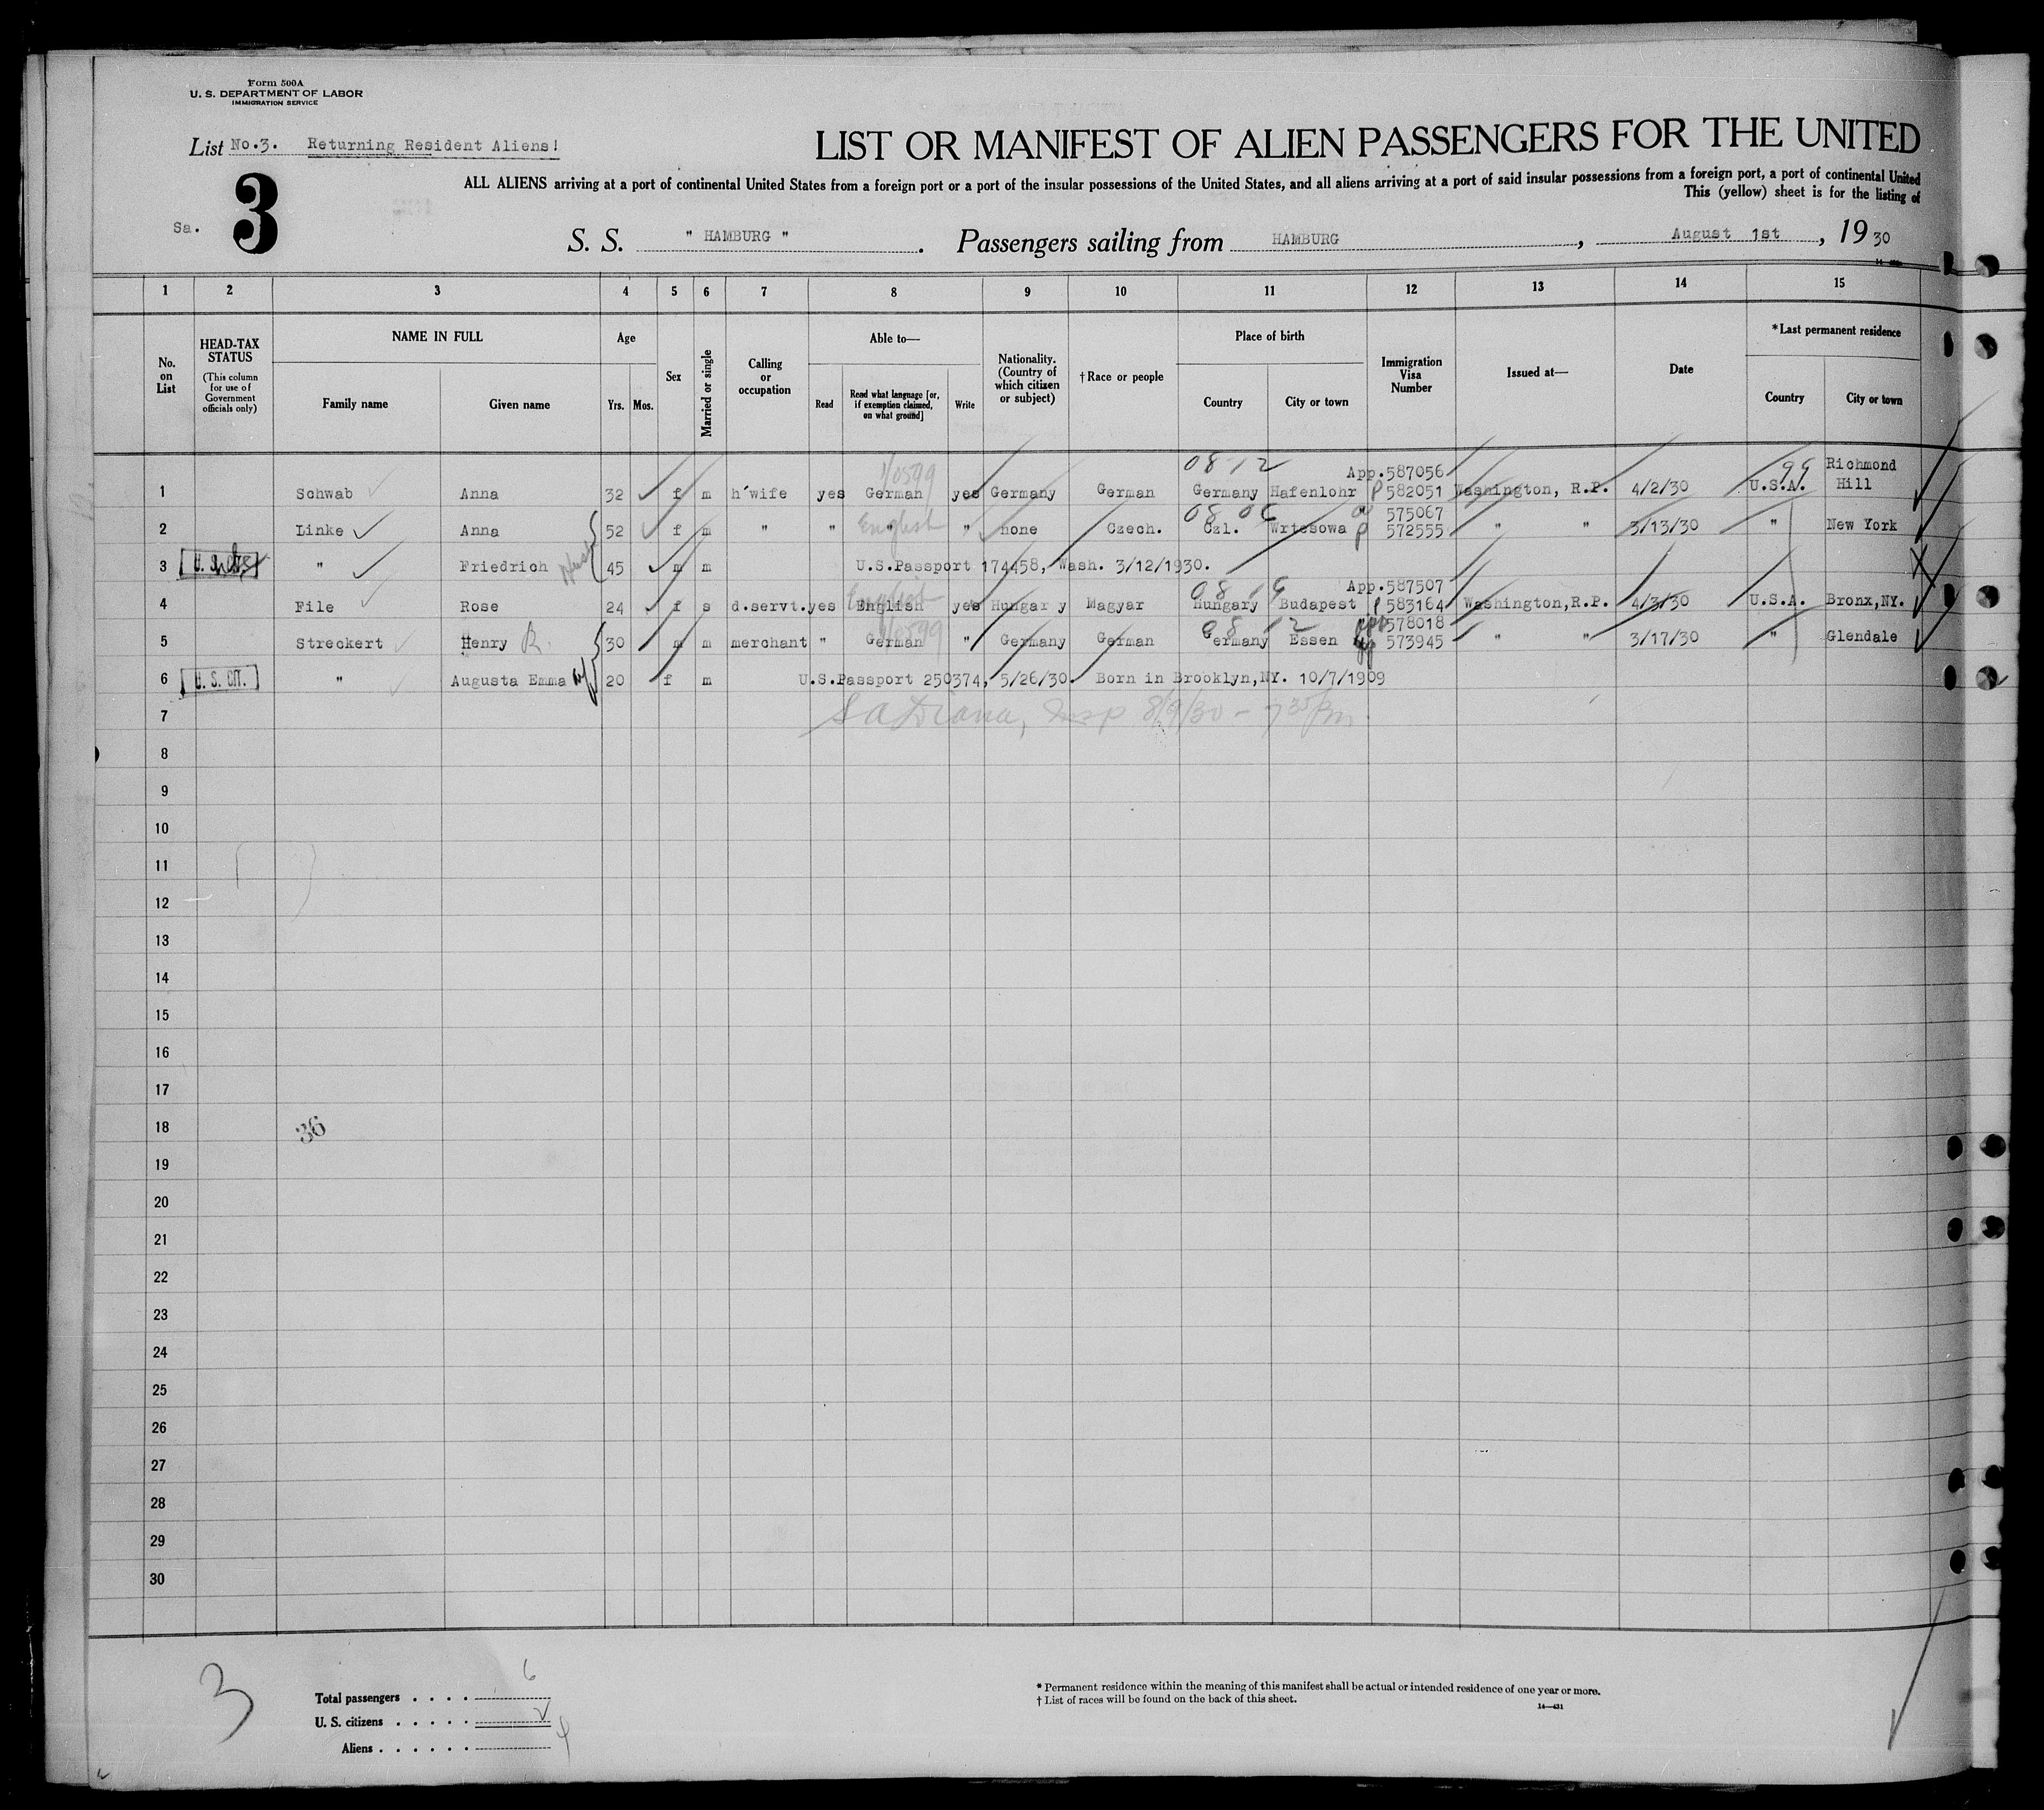 Form 500A
U. S. DEPARTMENT OF LABOR
IMMIGRATION SERVICE
List No.3. Returning Resident Aliens!
LIST OR MANIFEST OF ALIEN PASSENGERS FOR THE UNITED
ALL ALIENS arriving at a port of continental United States from a foreign port or a port of the insular possessions of the United States, and all aliens arriving at a port of said insular possessions from a foreign port, a port of continental United
This (yellow) sheet is for the listing of
Sa. 3
S. S. " HAMBURG " . Passengers sailing from HAMBURG , August 1st , 19 30
1 2 3 4 5 6 7 8 9 10 11 12 13 14 15
No. on List
HEAD-TAX STATUS
(This column for use of Government officials only)
NAME IN FULL
Family name Given name
Age
Yrs. Mos.
Sex
Married or single
Calling or occupation
Able to—
Read
Read what language [or, if exemption claimed, on what ground]
Write
Nationality. (Country of which citizen or subject)
† Race or people
Place of birth
Country City or town
Immigration Visa Number
Issued at—
Date
*Last permanent residence
Country City or town
1/0599 08 12 App.587056 99 Richmond
1 Schwab Anna 32 f m h'wife yes German yes Germany German Germany Hafenlohr P 582051 Washington, R.P. 4/2/30 U.S.A. Hill
08 06 575067
2 Linke Anna 52 f m " " " English " none Czech. Czl. Wrtesowa P 572555 " " 3/13/30 " New York
3 " Friedrich Husb 45 m m U.S.Passport 174458, Wash. 3/12/1930.
English App.587507
4 File Rose 24 f s d.servt. yes English yes Hungar y Magyar Hungary Budapest P 583164 Washington,R.P. 4/3/30 U.S.A. Bronx,NY.
1/0599 08 12 578018
5 Streckert Henry R. 30 m m merchant " German " Germany German Germany Essen 573945 " " 3/17/30 " Glendale
6 U. S. CIT. " Augusta Emma 20 f m U.S.Passport 250374, 5/26/30. Born in Brooklyn,NY. 10/7/1909
7
8
9
10
11
12
13
14
15
16
17
18 36
19
20
21
22
23
24
25
26
27
28
29
30
3
Total passengers . . . . 6
U. S. citizens . . . . .
Aliens . . . . . . 4
* Permanent residence within the meaning of this manifest shall be actual or intended residence of one year or more.
† List of races will be found on the back of this sheet.
14—431